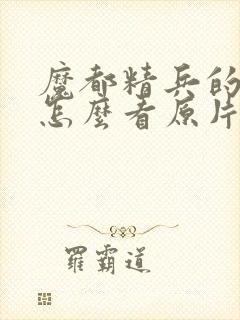 魔都精兵的
怎麼看原片
羅霸道